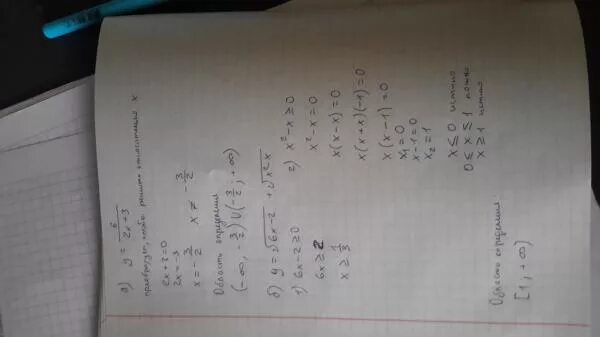 а) y = 6/(2x+3)
преобразуем, чтобы решить относительно x
2x+3=0
2x=-3
x=-3/2 x≠-3/2
Область определения
(-∞, -3/2)U(-3/2; +∞)
б) y=√(6x-2) + √(x²-x)
1) 6x-2≥0
6x≥2
x≥1/3
2) x²-x≥0
x²-x=0
x(x-x)=0
x(x+x)(-1)=0
x(x-1)=0
x₁=0
x-1=0
x₂=1
x≤0 истино
0≤x≤1 ложно
x≥1 истино
Область определения:
[1; +∞)